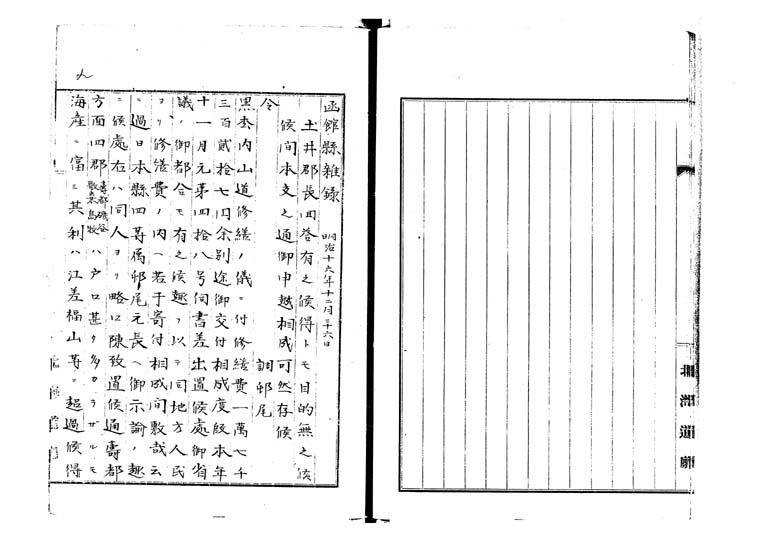 函館縣雑録 明治十六年十二月二十六日
土井郡長回答有之候得トモ目的無之候
候間本文之通御申越相成可然存候
調邨尾
令
黒松内山道修繕ノ儀ニ付修繕費一萬七千
三百貳拾七円余別途御交付相成度段本年
十一月元第四拾八号伺書差出置候處御省
議ノ御都合モ有之候趣ヲ以テ同地方人民
ヨリ修繕費ノ内ヘ若干寄付相成間敷哉云
ニ過日本縣四等属邨尾元長ヘ御示諭ノ趣
ニ候處右ハ同人ヨリ略口陳致置候通壽都
方面四郡 壽都磯谷 歌棄島牧 ハ戸口甚タ多カラザルモ
海産ニ富ミ其利ハ江差福山等ニ超過候得
九